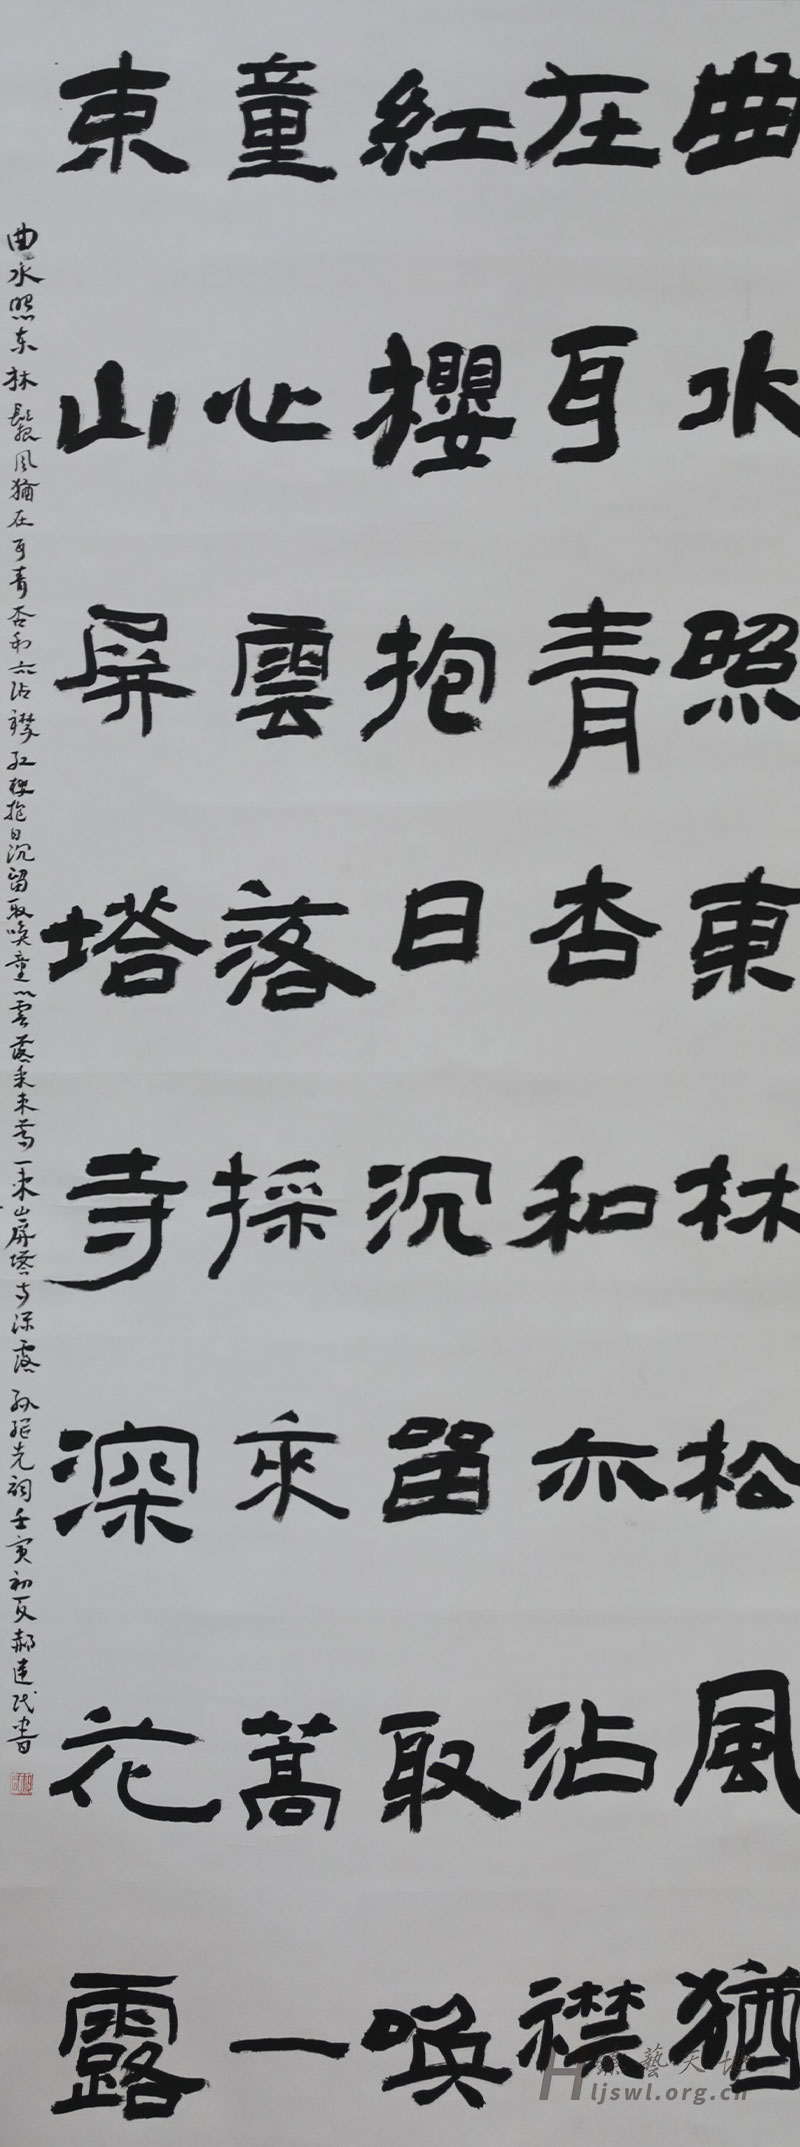 曲水照東林松風猶
在耳青杏和亦沾襟
紅櫻抱日沉留取喚
童心雲落採來蒿一
東山屏塔寺深花露
曲水照东林鬆风猶在耳青杏和亦沾襟红樱抱日沉留取唤童心雲落采来蒿一东山屏塔寺深露 先词壬寅初夏郝建民书
藝天地
ljswl.org.cn